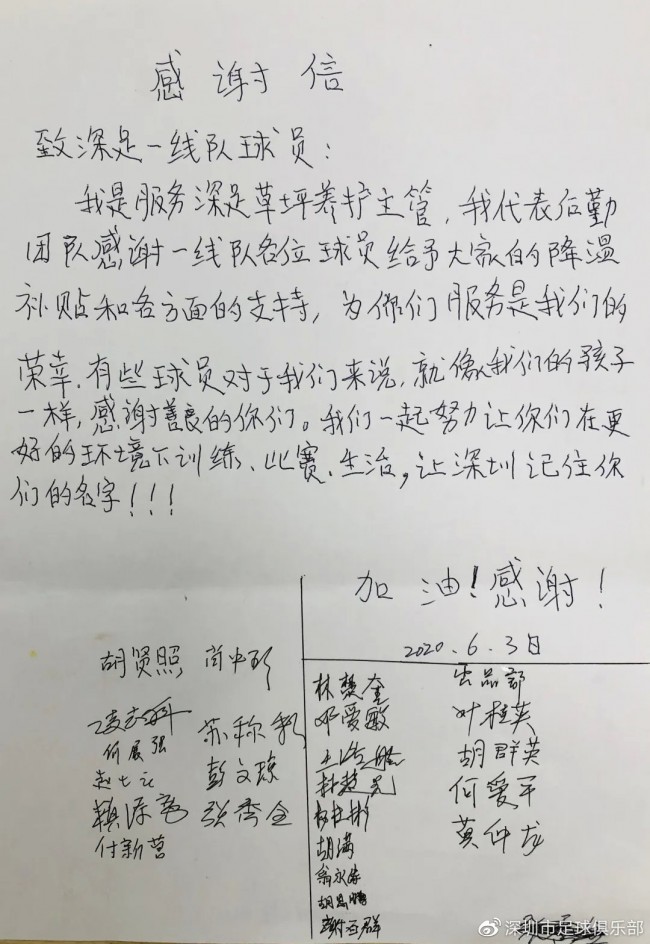 感谢信
致深足一线队球员：
我是服务深足草坪养护主管，我代表后勤
团队感谢一线队各位球员给予大家的降温
补贴和各方面的支持，为你们服务是我们的
荣幸.有些球员对于我们来说，就像我们的孩子
一样，感谢善良的你们。我们一起努力让你们在更
好的环境下训练、比赛、生活，让深圳记住你
们的名字！！！
加油！感谢！
2020.6.3日
胡贤照 尚中
何展强
彭文琼
张秀全
付新营
林楚奎
邓爱敏
胡满
翁永
出品部
叶桂英
胡群英
何爱平
黄仲龙
深圳市足球俱乐部